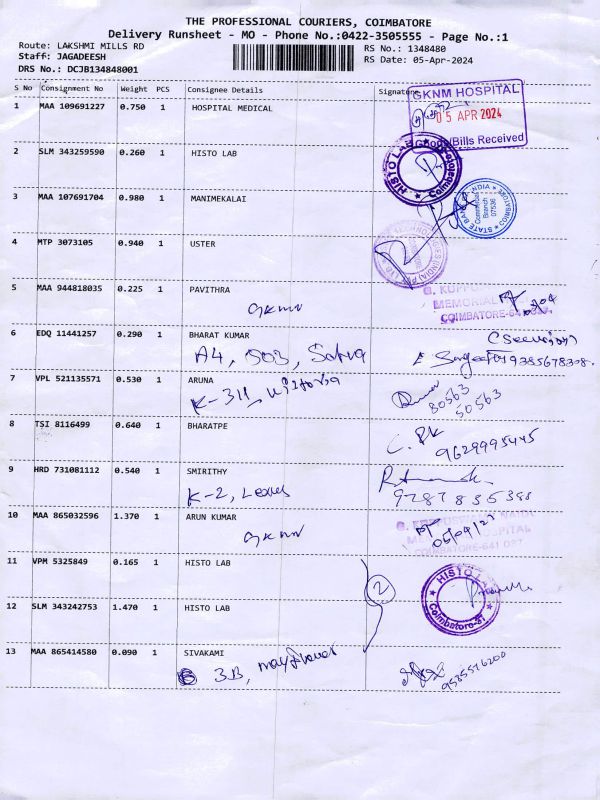 THE PROFESSIONAL COURIERS, COIMBATORE
Delivery Runsheet - MO - Phone No.:0422-3505555 - Page No.:1
Route: LAKSHMI MILLS RD
RS No.: 1348480
Staff: JAGADEESH
RS Date: 05-Apr-2024
DRS No.: DCJB134848001
S No Consignment No Weight PCS Consignee Details Signature
GKNM HOSPITAL
1 MAA 109691227 0.750 1 HOSPITAL MEDICAL
05 APR 2024
Goods/Bills Received
2 SLM 343259590 0.260 1 HISTO LAB
HISTO LAB
Coimbatore
3 MAA 107691704 0.980 1 MANIMEKALAI
STATE BANK OF INDIA
Branch
07536
COIMBATORE
4 MTP 3073105 0.940 1 USTER
5 MAA 944818035 0.225 1 PAVITHRA
GKNM
MEMORIAL
COIMBATORE-641
6 EDQ 11441257 0.290 1 BHARAT KUMAR
A4, 503,
9385678308
7 VPL 521135571 0.530 1 ARUNA
K-311,
80563
50563
8 TSI 8116499 0.640 1 BHARATPE
9629995445
9 HRD 731081112 0.540 1 SMIRITHY
K-2, Lexus
9787835388
10 MAA 865032596 1.370 1 ARUN KUMAR
GKNM
HOSPITAL
COIMBATORE-641 037
11 VPM 5325849 0.165 1 HISTO LAB
2
HISTO LAB
12 SLM 343242753 1.470 1 HISTO LAB
Coimbatore-37
13 MAA 865414580 0.090 1 SIVAKAMI
3B, mayflower
9585576200